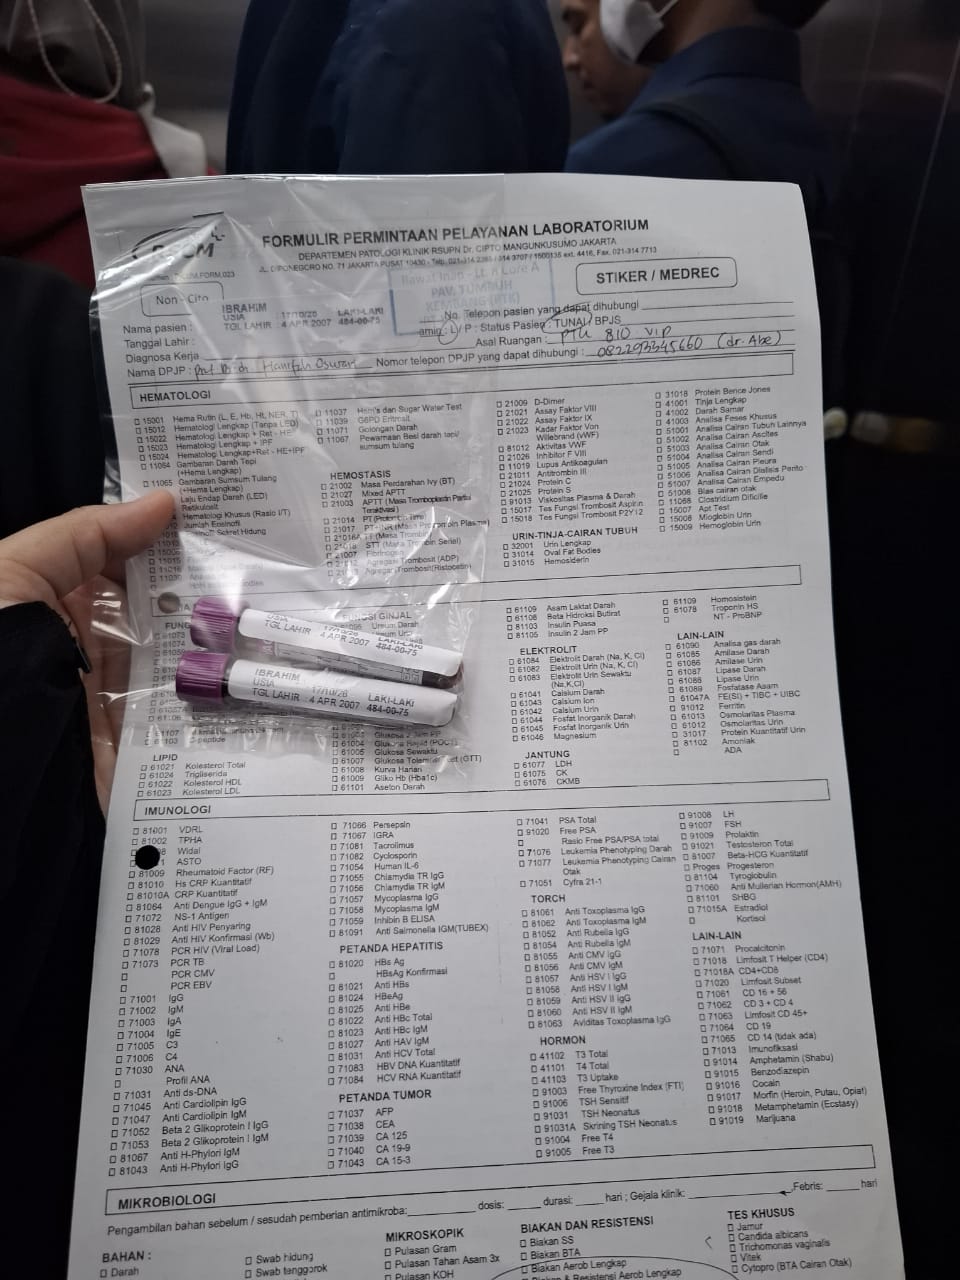 FORMULIR PERMINTAAN PELAYANAN LABORATORIUM
DEPARTEMEN PATOLOGI KLINIK RSUPN Dr. CIPTO MANGUNKUSUMO JAKARTA
JL. DIPONEGORO NO. 71 JAKARTA PUSAT 10430
STIKER / MEDREC
Non - Cito
Rawat Inap - Lt. 8 Core A
PAV. TUMBUH
KEMBANG (PTK)
IBRAHIM
USIA 17/10/26 LAKI-LAKI
TGL LAHIR : 4 APR 2007 484-00-75
No. Telepon pasien yang dapat dihubungi
Nama pasien :
L / P : Status Pasien : TUNAI / BPJS
Tanggal Lahir :
Asal Ruangan : 810 VIP
Diagnosa Kerja
Nama DPJP : Nomor telepon DPJP yang dapat dihubungi : 082293345660 (dr. Abe)
HEMATOLOGI
15001 Hema Rutin (L, E, Hb, Ht, NER, T)
15012 Hematologi Lengkap (Tanpa LED)
15022 Hematologi Lengkap + Ret - HE
15023 Hematologi Lengkap + IPF
15024 Hematologi Lengkap+Ret - HE+IPF
11064 Gambaran Darah Tepi
(+Hema Lengkap)
11065 Gambaran Sumsum Tulang
(+Hema Lengkap)
Laju Endap Darah (LED)
Retikulosit
Hematologi Khusus (Rasio I/T)
Jumlah Eosinofil
11037 Ham's dan Sugar Water Test
11039 G6PD Eritrosit
11071 Golongan Darah
11067 Pewarnaan Besi darah tepi/
sumsum tulang
HEMOSTASIS
21002 Masa Perdarahan Ivy (BT)
21027 Mixed APTT
21003 APTT (Masa Tromboplastin Partial
Teraktivasi)
21014 PT
21017
21007 Fibrinogen
Agregasi Trombosit (ADP)
Agregasi Trombosit(Ristocetin)
21009 D-Dimer
21021 Assay Faktor VIII
21022 Assay Faktor IX
21023 Kadar Faktor Von
Willebrand (vWF)
81012 Aktivitas VWF
21026 Inhibitor F VIII
11019 Lupus Antikoagulan
21011 Antitrombin III
21024 Protein C
21025 Protein S
91013 Viskositas Plasma & Darah
15017 Tes Fungsi Trombosit Aspirin
15018 Tes Fungsi Trombosit P2Y12
URIN-TINJA-CAIRAN TUBUH
32001 Urin Lengkap
31014 Oval Fat Bodies
31015 Hemosiderin
31018 Protein Bence Jones
41001 Tinja Lengkap
41002 Darah Samar
41003 Analisa Feses Khusus
51001 Analisa Cairan Tubuh Lainnya
51002 Analisa Cairan Ascites
51003 Analisa Cairan Otak
51004 Analisa Cairan Sendi
51005 Analisa Cairan Pleura
51006 Analisa Cairan Dialisis Perito
51007 Analisa Cairan Empedu
51008 Bilas cairan otak
11068 Clostridium Dificille
15007 Apt Test
15008 Mioglobin Urin
15009 Hemoglobin Urin
FUNGSI GINJAL
Ureum Darah
USIA 17/10/26 LAKI-LAKI
TGL LAHIR : 4 APR 2007 484-00-75
IBRAHIM
USIA 17/10/26 LAKI-LAKI
TGL LAHIR : 4 APR 2007 484-00-75
61107
61103 C-peptide
LIPID
61021 Kolesterol Total
61024 Trigliserida
61022 Kolesterol HDL
61023 Kolesterol LDL
Glukosa 2 Jam PP
61004 Glukosa Rapid (POCT)
61005 Glukosa Sewaktu
61007 Glukosa Toleransi Test (GTT)
61008 Kurva Harian
61009 Gliko Hb (Hba1c)
61101 Aseton Darah
61109 Asam Laktat Darah
61108 Beta Hidroksi Butirat
81103 Insulin Puasa
81105 Insulin 2 Jam PP
ELEKTROLIT
61084 Elektrolit Darah (Na, K, Cl)
61082 Elektrolit Urin (Na, K, Cl)
61083 Elektrolit Urin Sewaktu
(Na,K,Cl)
61041 Calsium Darah
61043 Calsium Ion
61042 Calsium Urin
61044 Fosfat Inorganik Darah
61045 Fosfat Inorganik Urin
61046 Magnesium
JANTUNG
61077 LDH
61075 CK
61076 CKMB
61109 Homosistein
61078 Troponin HS
NT - ProBNP
LAIN-LAIN
61090 Analisa gas darah
61085 Amilase Darah
61086 Amilase Urin
61087 Lipase Darah
61088 Lipase Urin
61089 Fosfatase Asam
61047A FE(SI) + TIBC + UIBC
91012 Ferritin
61013 Osmolaritas Plasma
61012 Osmolaritas Urin
31017 Protein Kuantitatif Urin
81102 Amoniak
ADA
IMUNOLOGI
81001 VDRL
81002 TPHA
Widal
ASTO
81009 Rheumatoid Factor (RF)
81010 Hs CRP Kuantitatif
81010A CRP Kuantitatif
81064 Anti Dengue IgG + IgM
71072 NS-1 Antigen
81028 Anti HIV Penyaring
81029 Anti HIV Konfirmasi (Wb)
71078 PCR HIV (Viral Load)
71073 PCR TB
PCR CMV
PCR EBV
71001 IgG
71002 IgM
71003 IgA
71004 IgE
71005 C3
71006 C4
71030 ANA
Profil ANA
71031 Anti ds-DNA
71045 Anti Cardiolipin IgG
71047 Anti Cardiolipin IgM
71052 Beta 2 Glikoprotein I IgG
71053 Beta 2 Glikoprotein I IgM
81067 Anti H-Phylori IgM
81043 Anti H-Phylori IgG
71066 Persepsin
71067 IGRA
71081 Tacrolimus
71082 Cyclosporin
71054 Human IL-6
71055 Chlamydia TR IgG
71056 Chlamydia TR IgM
71057 Mycoplasma IgG
71058 Mycoplasma IgM
71059 Inhibin B ELISA
81091 Anti Salmonella IGM(TUBEX)
PETANDA HEPATITIS
81020 HBs Ag
HBsAg Konfirmasi
81021 Anti HBs
81024 HBeAg
81025 Anti HBe
81022 Anti HBc Total
81023 Anti HBc IgM
81027 Anti HAV IgM
81031 Anti HCV Total
71083 HBV DNA Kuantitatif
71084 HCV RNA Kuantitatif
PETANDA TUMOR
71037 AFP
71038 CEA
71039 CA 125
71040 CA 19-9
71043 CA 15-3
71041 PSA Total
91020 Free PSA
Rasio Free PSA/PSA total
71076 Leukemia Phenotyping Darah
71077 Leukemia Phenotyping Cairan
Otak
71051 Cyfra 21-1
TORCH
81061 Anti Toxoplasma IgG
81062 Anti Toxoplasma IgM
81052 Anti Rubella IgG
81054 Anti Rubella IgM
81055 Anti CMV IgG
81056 Anti CMV IgM
81057 Anti HSV I IgG
81058 Anti HSV I IgM
81059 Anti HSV II IgG
81060 Anti HSV II IgM
81063 Aviditas Toxoplasma IgG
HORMON
41102 T3 Total
41101 T4 Total
41103 T3 Uptake
91003 Free Thyroxine Index (FTI)
91006 TSH Sensitif
91031 TSH Neonatus
91031A Skrining TSH Neonatus
91004 Free T4
91005 Free T3
91008 LH
91007 FSH
91009 Prolaktin
91021 Testosteron Total
81007 Beta-HCG Kuantitatif
Proges Progesteron
81104 Tyroglobulin
71060 Anti Mullerian Hormon(AMH)
81101 SHBG
71015A Estradiol
Kortisol
LAIN-LAIN
71071 Procalcitonin
71018 Limfosit T Helper (CD4)
71018A CD4+CD8
71020 Limfosit Subset
71061 CD 16 + 56
71062 CD 3 + CD 4
71063 Limfosit CD 45+
71064 CD 19
71065 CD 14 (tidak ada)
71013 Imunofiksasi
91014 Amphetamin (Shabu)
91015 Benzodiazepin
91016 Cocain
91017 Morfin (Heroin, Putau, Opiat)
91018 Metamphetamin (Ecstasy)
91019 Marijuana
MIKROBIOLOGI
Pengambilan bahan sebelum / sesudah pemberian antimikroba: dosis: durasi: hari ; Gejala klinik: ,Febris: hari
BAHAN :
Darah
Swab hidung
Swab tenggorok
MIKROSKOPIK
Pulasan Gram
Pulasan Tahan Asam 3x
Pulasan KOH
BIAKAN DAN RESISTENSI
Biakan SS
Biakan BTA
Biakan Aerob Lengkap
Biakan & Resistensi Aerob Lengkap
TES KHUSUS
Jamur
Candida albicans
Trichomonas vaginalis
Vitek
Cytopro (BTA Cairan Otak)